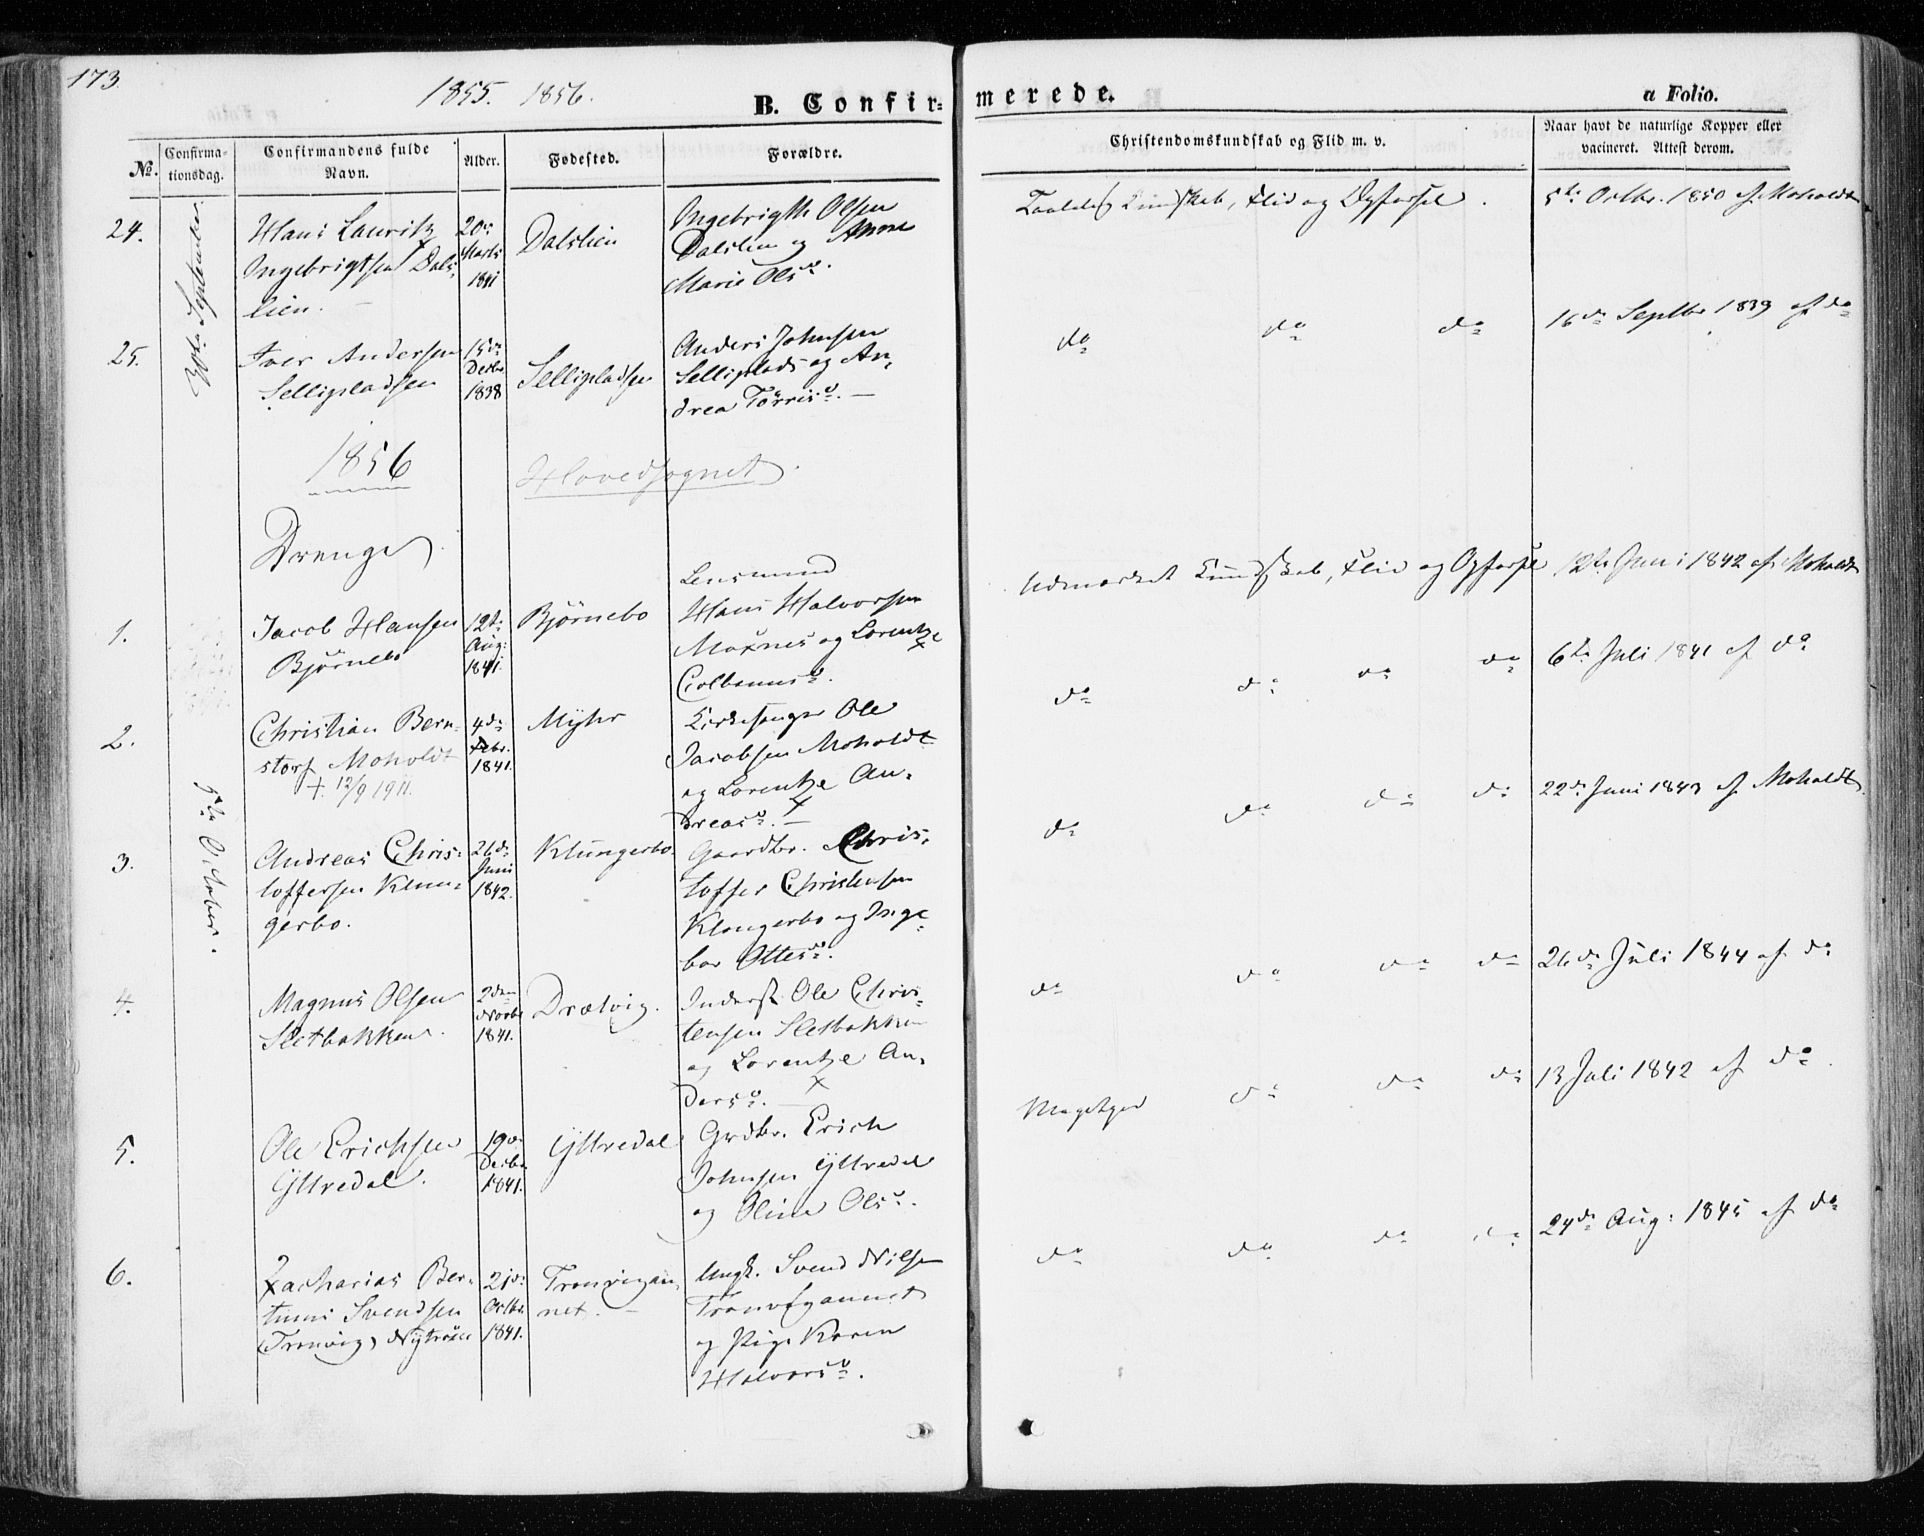 173.
1855. 1856.
B. Confirmerede.
a Folio.
No. Confirmationsdag. Confirmandens fulde Navn. Alder. Fødested. Forældre. Christendomskundskab og Flid m. v. Naar havt de naturlige Kopper eller vacineret. Attest derom.
September
24. Hans Lauritz 20de Dalslien Ingebrigth Olsen Kundskab, Flid og Opførsel. 5te Octbr. 1850 af Moholdt
Ingebrigtsen Dals- Marts Dalslien og Anne
lien. 1841 Marie Olsd.
25. Iver Andersen 15de Sellipladsen Anders Johnsen do do do 16de Septbr 1839 af do
Sellipladsen Decbr 1838 Selliplads og An-
drea Tørrisd.
1856 Hovedsognet.
Drenge
5te October.
1. Jacob Hansen 12te Bjørnebo Lensmand Udmærket Kundskab, Flid og Opførsel 12te Juni 1842 af Moholdt
Bjørnebo Aug: 1841. Hans Halvorsen
Moxnes og Lorentze
Colbannsd.
2. Christian Bern- 4de Myhr Kirkesanger Ole do do do do 6te Juli 1841 af do
storf Moholdt Febr. 1841. Jacobsen Moholdt
† 12/9 1911. og Lorentze An-
dreasd.
3. Andreas Chris- 26de Klungerbo Gaardbr. Chris- do do do do 22de Juni 1843 af Moholdt
toffersen Klun- Juni 1842. toffer Christensen
gerbo. Klungerbo og Inge-
bor Ottesd.
4. Magnus Olsen 2den Drætvig. Inderst Ole Chris- do do do do 26de Juli 1844 af do
Sletbakken. Novbr 1841. tensen Sletbakken
og Lorentze An-
dersd.
5. Ole Erichsen 19de Yttredal Grdbr. Erich Megetgod do do do 13 Juli 1842 af do
Yttredal. Decbr 1841. Johnsen Yttredal
og Oline Olsd.
6. Zacharias Ber- 21de Tronvigan- Ungk. Svend Nilsen do do do do 24de Aug: 1845 af do
tinus Svendsen Octbr. net.
Tronvig 1841. og Pige Karen
Halvorsd.